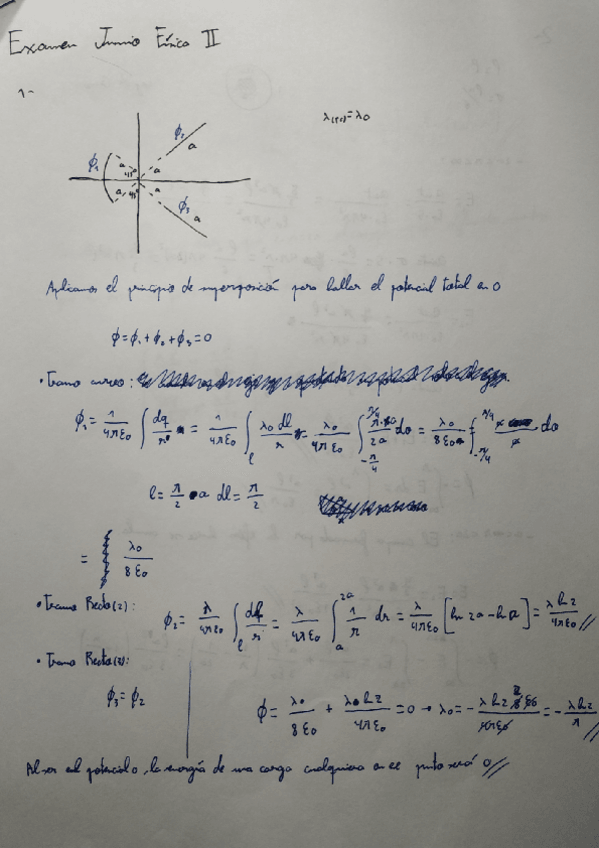 Examen Junio Física II
1-
λ(r)=λ0
ϕ2
a
ϕ1 a 45º a
a 45º a
ϕ3 a
Aplicamos el principio de superposición para hallar el potencial total en 0
ϕ=ϕ1+ϕ2+ϕ3=0
• Tramo curvo:
ϕ1 = 1/4πε0 ∫ dq/r = 1/4πε0 ∫l λ0 dl/r = λ0/4πε0 ∫-π/4 π/4 π·a/2a do = λ0/8ε0 ∫-π/4 π/4 do
l = π/2 a dl = π/2
= λ0/8ε0
• Tramo Recto(2): ϕ2 = λ/4πε0 ∫l dl/r = λ/4πε0 ∫a 2a 1/r dr = λ/4πε0 [ln 2a - ln a] = λ ln2/4πε0 //
• Tramo Recto(3):
ϕ3 = ϕ2
ϕ = λ0/8ε0 + λ0 ln2/4πε0 = 0 → λ0 = - λ ln2 8ε0/4πε0 = - λ ln2/π //
Al ser el potencial 0, la energía de una carga cualquiera en ese punto será 0 //